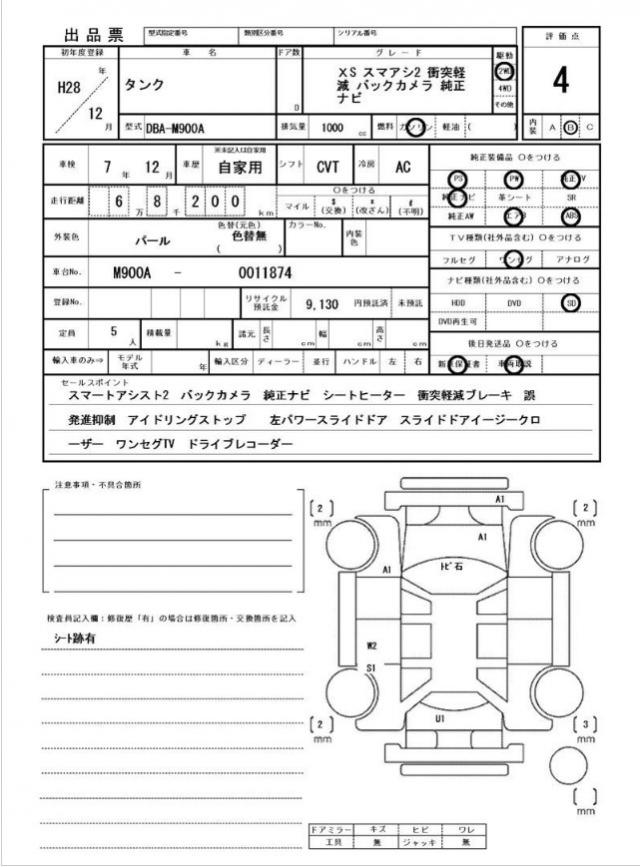 出品票 型式指定番号 類別区分番号 シリアル番号 評価点
初年度登録 車名 ドア数 グレード 駆動
H28 年 タンク XS スマアシ2 衝突軽 2WD 4
減 バックカメラ 純正 4WD
ナビ その他
12 月 D
型式 DBA-M900A 排気量 1000 cc 燃料 ガソリン 軽油 ( ) 内装 A B C
車検 7 年 12 月 車歴 ※未記入は自家用 自家用 シフト CVT 冷房 AC 純正装備品 〇をつける
PS PW 純正TV
走行距離 6 万 8 千 2 0 0 km 〇をつける
マイル $(交換) *(改ざん) #(不明) 純正ナビ 革シート SR
純正AW エアB ABS
外装色 パール 色替(元色) 色替無 ( ) カラーNo. 内装色 TV種類(社外品含む) 〇をつける
フルセグ ワンセグ アナログ
車台No. M900A - 0011874 ナビ種類(社外品含む) 〇をつける
登録No. リサイクル預託金 9,130 円預託済 未預託 HDD DVD SD
DVD再生可
定員 5 人 積載量 kg 諸元 長さ cm 幅 cm 高さ cm 後日発送品 〇をつける
輸入車のみ⇒ モデル年式 年 輸入区分 ディーラー 並行 ハンドル 左 右 新車保証書 車両取説
セールスポイント
スマートアシスト2 バックカメラ 純正ナビ シートヒーター 衝突軽減ブレーキ 誤
発進抑制 アイドリングストップ 左パワースライドドア スライドドアイージークロ
ーザー ワンセグTV ドライブレコーダー
注意事項・不具合箇所
検査員記入欄：修復歴「有」の場合は修復箇所・交換箇所を記入
シート跡有
A1
[2] mm [2] mm
A1
トビ石
A1
W2
S1
U1
[2] mm [3] mm
[ ] mm
ドアミラー キズ ヒビ ワレ
工具 無 ジャッキ 無